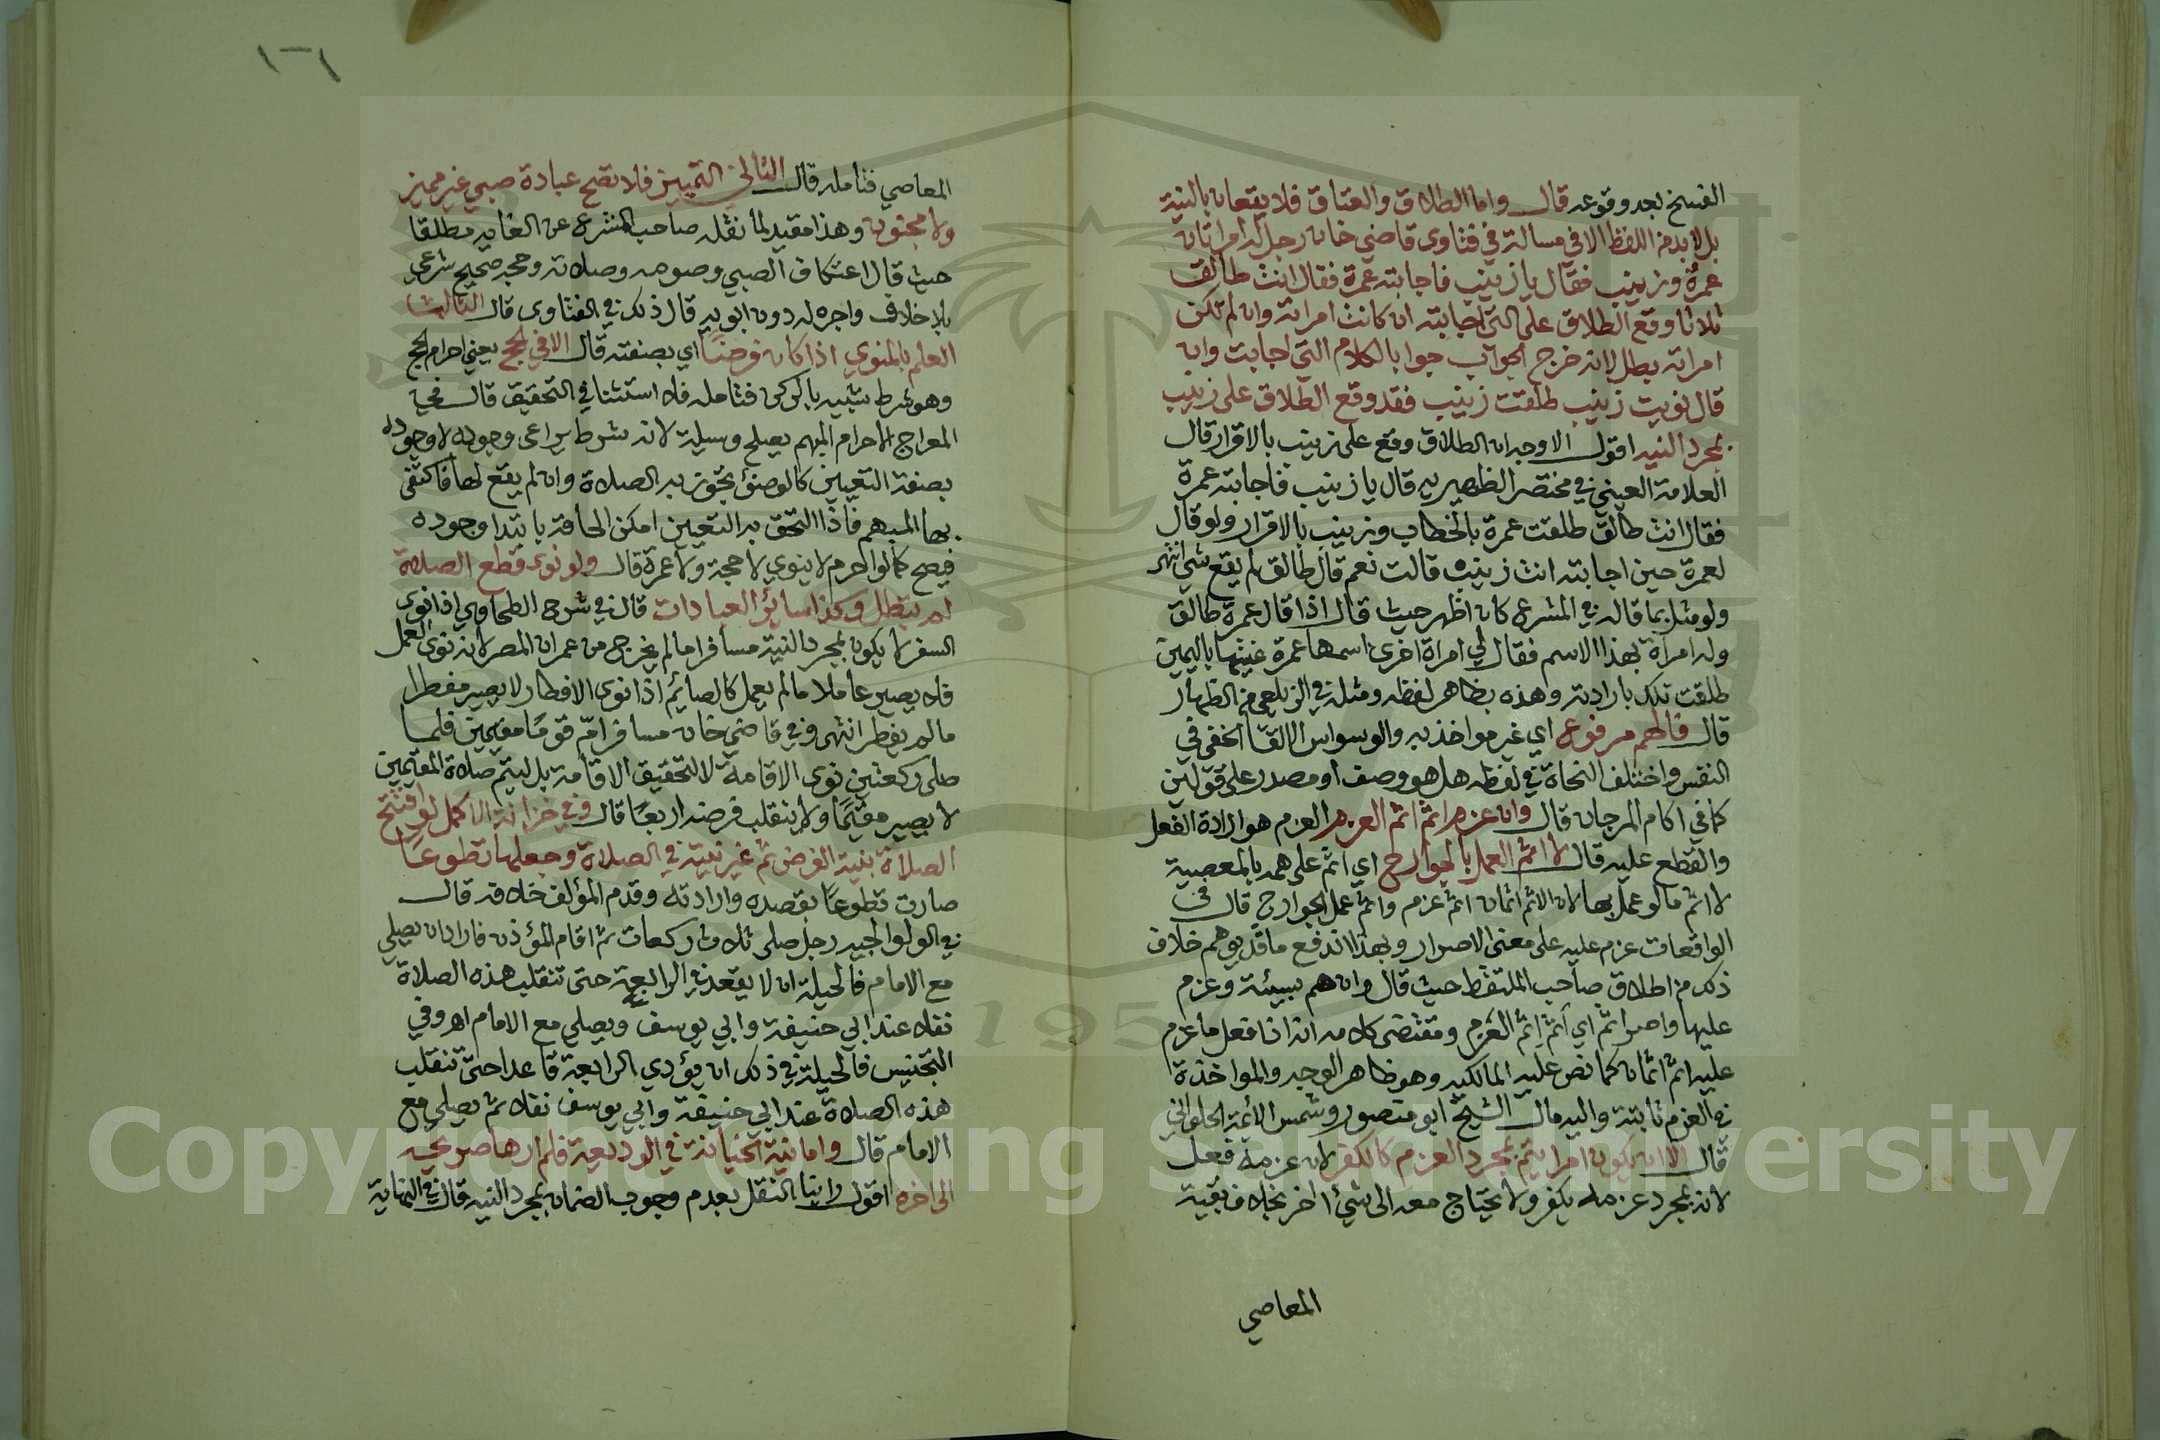 الفسخ بعد وقوعه قال واما الطلاق والعتاق فلا يقعان بالنية
بل لا بد من اللفظ الا في مسالة في فتاوى قاضي خان رجل له امراتان
عمرة وزينب فقال يا زينب فاجابته عمرة فقال انت طالق
ثلاثا وقع الطلاق على التي اجابته ان كانت امراته وان لم تكن
امراته بطل لانه خرج الجواب جوابا لكلام التي اجابت وان
قال نويت زينب طلقت زينب فقد وقع الطلاق على زينب
بمجرد النيه اقول الاوجه ان الطلاق وقع على زينب بالاقرار قال
العلامة العيني في مختصر الظهيريه قال يا زينب فاجابته عمرة
فقال انت طالق طلقت عمرة بالخطاب وزينب بالاقرار ولو قال
لعمرة حين اجابته انت زينب قالت نعم قال طالق لم يقع شي انتهى
ولو مثل بما قاله في المشرع كان اظهر حيث قال اذا قال عمرة طالق
وله امراة بهذا الاسم فقال لي امراة اخرى اسمها عمرة عنيتها باليمين
طلقت تلك بارادته وهذه بظاهر لفظه ومثله في الزيلعي من الظهار
قال فالهم مرفوع اي غير مواخذ به والوسواس الالقا الخفي في
النفس واختلف النحاة في لفظه هل هو وصف او مصدر على قولين
كما في اكام المرجان قال وان عزم اثم اثم العزم العزم هو ارادة الفعل
والقطع عليه قال لا اثم العمل بالجوارح اي اثم على همه بالمعصية
لا اثم ما لو عمل بها لان الاثم اثمان اثم عزم واثم عمل الجوارح قال في
الواقعات عزم عليه على معنى الاصرار وبهذا اندفع ما قد يوهم خلاف
ذلك من اطلاق صاحب الملتقط حيث قال وان هم بسيئة وعزم
عليها واصر اثم اي اثم اثم العزم ومقتضى كلامه انه اذا فعل ما عزم
عليه اثم اثمان كما نص عليه المالكيه وهو ظاهر الوجه والمواخذة
في العزم ثابتة واليه مال الشيخ ابو منصور وشمس الائمة الحلواني
قال الا ان يكون امرا يتم بمجرد العزم كالكفر لان عزمه فعل
لانه بمجرد عزمه يكفر ولا يحتاج معه الى شيء اخر بخلاف بقية
المعاصي
١٠٦
المعاصي فتامله قال الثاني التمييز فلا تصح عبادة صبي غير مميز
ولا مجنون وهذا مقيد لما نقله صاحب المشرع عن مطلقا
حيث قال اعتكاف الصبي وصومه وصلاته وحجه صحيح شرعي
بلا خلاف واجره له دون ابويه قال ذلك في الفتاوى قال الثالث
العلم بالمنوي اذا كان فرضا اي بصفته قال الا في الحج يعني احرام الحج
وهو شرط شبيه بالركن فتامله فلا استثنا في التحقيق قال في
المعراج الاحرام المبهم يصلح وسيلة لانه شرط يراعى وجوده لا وجوده
بصفة التعيين كالوضؤ تجوز به الصلاة وان لم يقع لها فاكتفى
بها المبهم فاذا التحق به التعيين امكن الحاقه بابتدا وجوده
فيصح كما لو احرم لا ينوي لا حجة ولا عمرة قال ولو نوى قطع الصلاة
لم تبطل وكذا سائر العبادات قال في شرح الطحاوي اذا نوى
السفر لا يكون بمجرد النية مسافرا ما لم يخرج من عمران المصر لانه نوى العمل
فلا يصير عاملا ما لم يعمل كالصائم اذا نوى الافطار لا يصير مفطرا
ما لم يفطر انتهى وفي قاضي خان مسافر ام قوما مقيمين فلما
صلى ركعتين نوى الاقامة لا لتحقيق الاقامة بل ليتم صلاة المقيمين
لا يصير مقيما ولا ينقلب فرضه اربعا قال وفي خزانة الاكمل لو افتتح
الصلاة بنية الفرض ثم غير نيته في الصلاة وجعلها تطوعا
صارت تطوعا بقصده وارادته وقدم المؤلف خلافه قال
في الولوالجيه رجل صلى ثلاث ركعات ثم اقام المؤذن فاراد ان يصلي
مع الامام فالحيلة ان لا يقعد في الرابعة حتى تنقلب هذه الصلاة
نفلا عند ابي حنيفة وابي يوسف ويصلي مع الامام اهـ وفي
التجنيس فالحيلة في ذلك ان يؤدي الرابعة قاعدا حتى تنقلب
هذه الصلاة عند ابي حنيفة وابي يوسف نفلا ثم يصلي مع
الامام قال واما نية الخيانة في الوديعة فلم ارها صريحه
الى اخره اقول راينا النقل بعدم وجوب الضمان بمجرد النيه قال في النهاية
Copyright © King Saud University
195